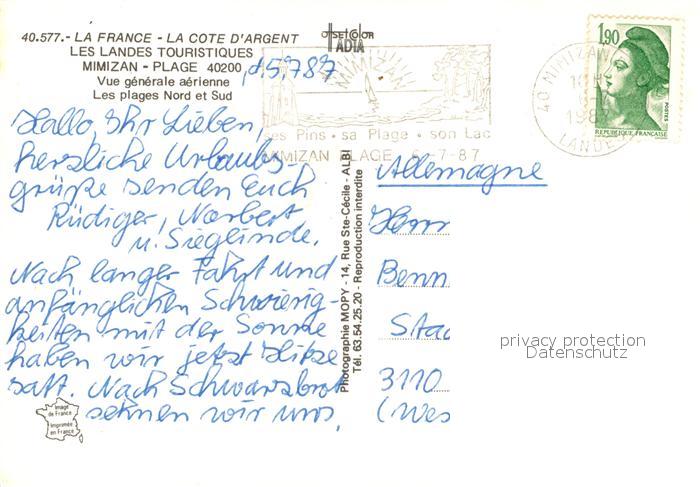 40.577.- LA FRANCE - LA COTE D'ARGENT
LES LANDES TOURISTIQUES
MIMIZAN - PLAGE 40200
Vue générale aérienne
Les plages Nord et Sud
offset color
ADIA
5.7.87
Hallo, Ihr Lieben,
herzliche Urlaubs-
grüße senden Euch
Rüdiger, Norbert
u. Sieglinde.
Nach langer Fahrt und
anfänglichen Schwierig-
keiten mit der Sonne
haben wir jetzt Hitze
satt. Nach Schwarzbrot
sehnen wir uns.
Image
de France
Imprimée
en France
MIMIZAN
ses Pins • sa Plage • son Lac
MIMIZAN PLAGE 6-7-87
Photographie MOPY - 14, Rue Ste-Cécile - ALBI
Tél. 63.54.25.20 - Reproduction interdite
40 MIMIZAN
LANDES
1,90
POSTES
REPUBLIQUE FRANÇAISE
Allemagne
Herrn
Benn
Stad
3110
(Wes
privacy protection
Datenschutz